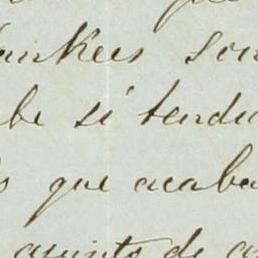 ankees son
be si tendr
s que acaba
asunto de a